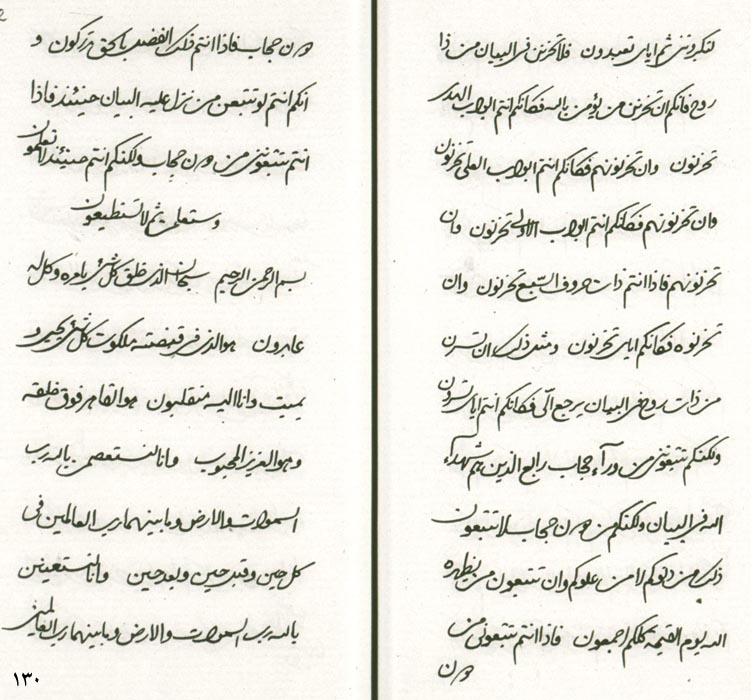 لتكبروننى ثم اياى تعبدون فلا تحزنن فى البيان من ذا
روح فانكم ان تحزنن من يؤمن بالله فكانكم انتم ابواب الهدى
تحزنون وان تحزنونهم فكانكم انتم ابواب العلى تحزنون
وان تحزنونهم فكانكم انتم ابواب الاولى تحزنون وان
تحزنونهم فاذا انتم ذات حروف السبع تحزنون وان
تحزنوه فكانكم اياى تحزنون ومثل ذلك ان تسرن
من ذات روح فى البيان يرجع الى فكانكم انتم اياى تسرون
ولكنكم تتبعوننى من ورآء حجاب رابع الذين هم شهدآء
الله فى البيان ولكنكم من ورآء حجاب لا تتبعون
ذلك من دنوكم لا من علوكم وان تتبعون من يظهره
الله يوم القيمة كلكم اجمعون فاذا انتم تتبعونى من
دون
دون حجاب فاذا انتم ذلك الفضل بالحق تدركون و
انكم انتم لو تتبعن من نزل عليه البيان حينئذ فاذا
انتم تتبعوننى من دون حجاب ولكنكم انتم حينئذ لا تعلمون
وستعلمن ثم لا تستطيعون
بسم الرحمن الرحيم سبحان الذى خلق كل شئ بامره وكل له
عابدون هو الذى فى قبضته ملكوت كل شئ يحيى و
يميت وانا اليه منقلبون هو القاهر فوق خلقه
وهو العزيز المحبوب وانا لنستعصمن بالله رب
السموات والارض وما بينهما رب العالمين فى
كل حين وقبل حين وبعد حين وانا لنستعينن
بالله رب السموات والارض وما بينهما رب العالمين
١٣٠